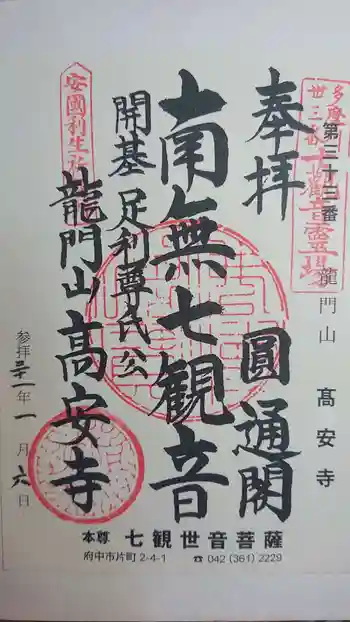 第三十三番 龍門山 高安寺
奉拝
圓通閣
南無七観音
開基 足利尊氏公
龍門山 高安寺
安國利生
参拝 三十一年 一月 六日
本尊 七観世音菩薩
府中市片町2-4-1 ☎ 042 (361) 2229